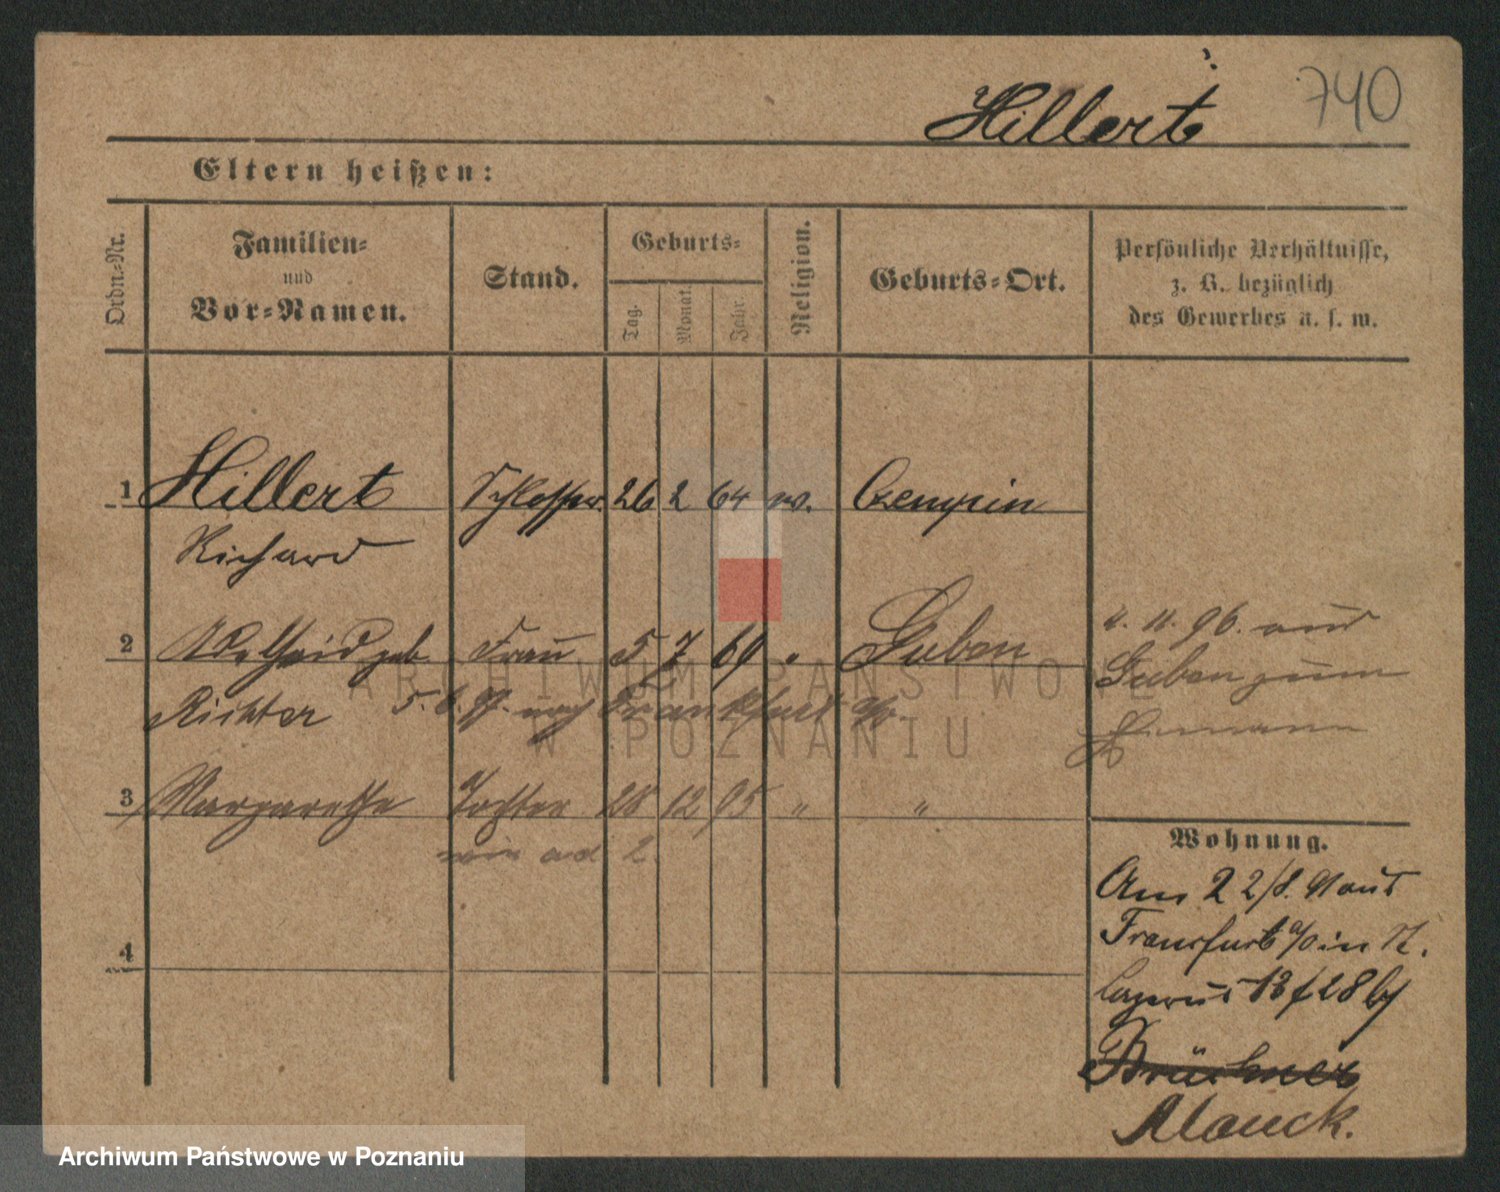 Hillert 740
Eltern heißen:
Ordn.-Nr.
Familien-
und
Vor-Namen.
Stand.
Geburts-
Tag.
Monat.
Jahr.
Religion.
Geburts-Ort.
Persönliche Verhältnisse,
z. B. bezüglich
des Gewerbes u. s. w.
1 Hillert Schlosser 26 2 64 Czempin
Richard
2 Adelheid geb. Frau 5 7 69 " Guben
Richter 5. 6. 97. nach Frankfurt a/O.
4. 11. 96. aus
Guben zum
Ehemann
3 Margarethe Tochter 28 12 95 " "
wie ad 2.
4
Wohnung.
Am 22/8. 91 aus
Frankfurt a/O in St.
Lazarus 13 f 28 bei
Brückner
Mauck.
ARCHIWUM PAŃSTWOWE
W POZNANIU
Archiwum Państwowe w Poznaniu